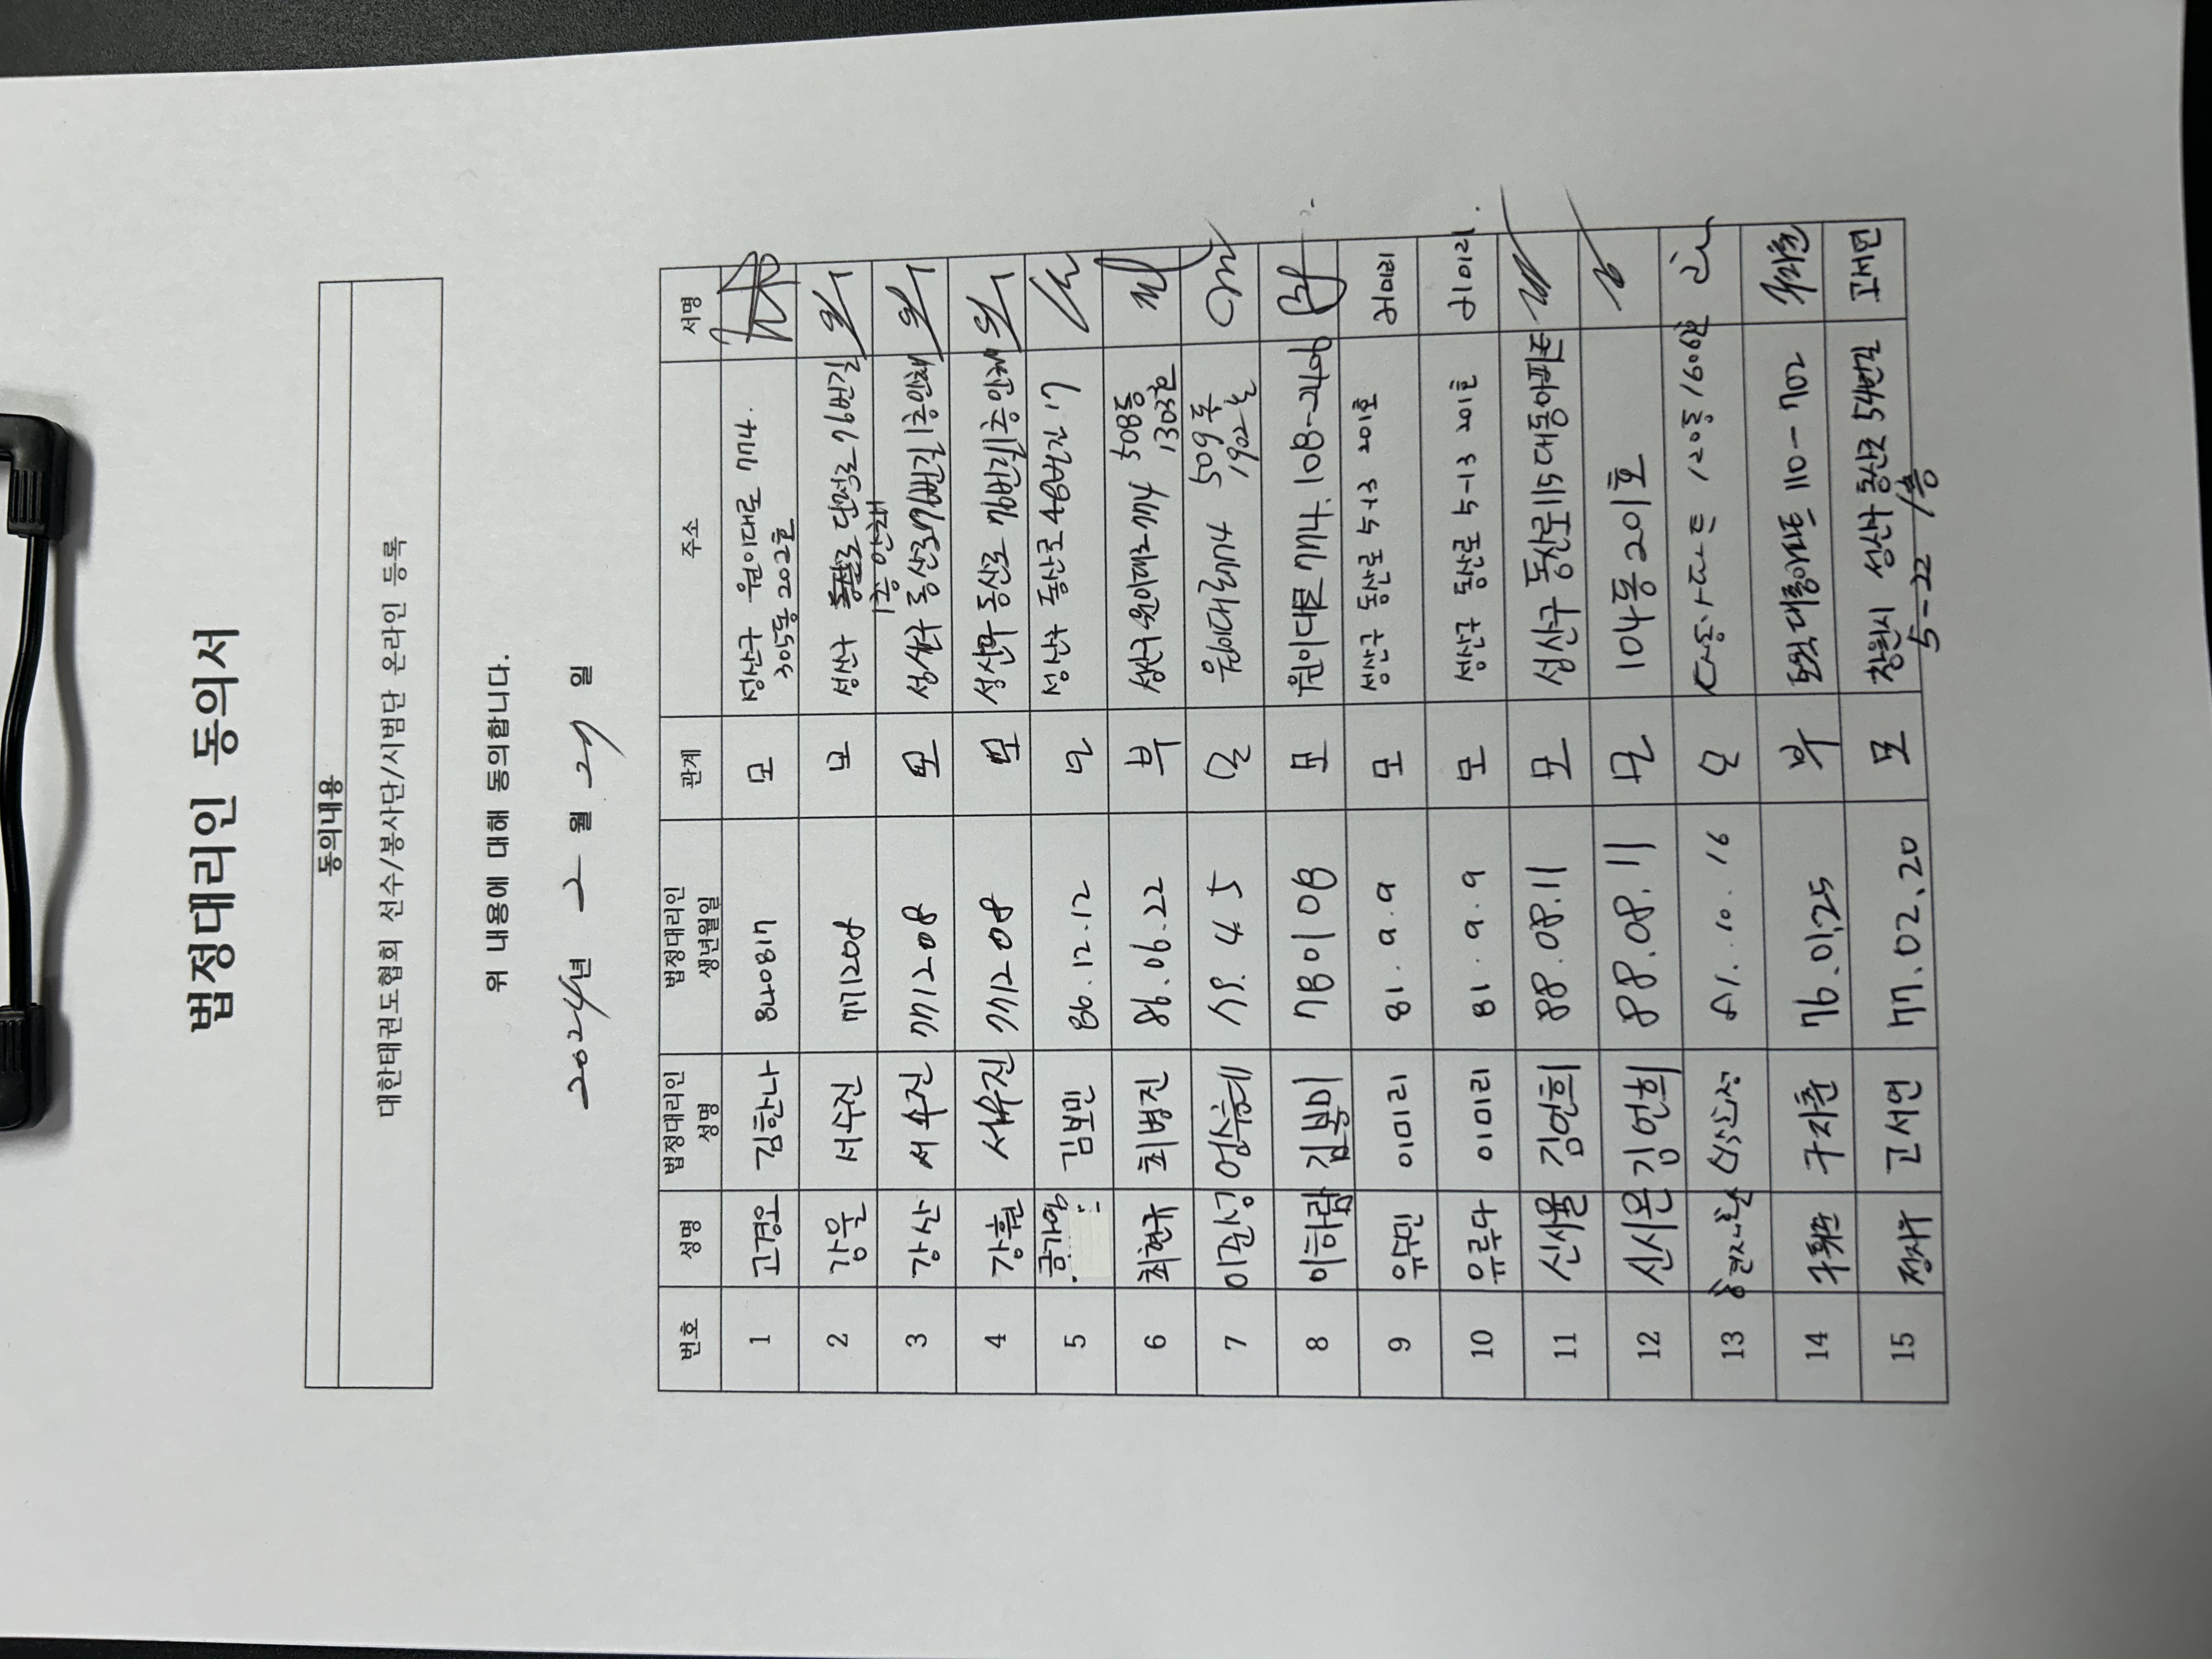 법정대리인 동의서
동의내용
대한태권도협회 선수/봉사단/시범단 온라인 등록
위 내용에 대해 동의합니다.
2024년 2월 27일
번호 성명 법정대리인 성명 법정대리인 생년월일 관계 주소 서명
1 고경오 김한나 840817 모 성산구 원이대로 774. 305동 202호
2 강율 서수진 771208 모 성산구 단정로 76번길 1층 안채
3 강산 서수진 771208 모 성산구 동산로 76번길 1층 안채
4 강훈 서수진 771208 모 성산구 동산로 76번길 1층 안채
5 김보민 86.12.12 모 성산구 동산로 48번길 17
6 최현규 최병진 86.06.22 부 성산구 원이대로 774 508동 1303호
7 이준성 엄춘혜 79. 4 5 모 원이대로 774 509동 1902호
8 이하람 김봄이 780108 모 원이대로 774. 108-2406
9 유두민 이미리 81. 9. 9 모 성산구 동산로 5-13 201호 이미리
10 유루다 이미리 81. 9. 9 모 성산구 동산로 5-13 201호 이미리
11 신서율 김연희 88.08.11 모 성산구 동산로 115 대동아파트
12 신시온 김연희 88.08.11 모 104동 201호
13 81.10.16 모 120동 1606호
14 구지훈 76.01.25 부 대동아파트 110-702 구지훈
15 정지우 고서연 77.02.20 모 창원시 성산구 동산로 54번길 5-22 1층 고서연